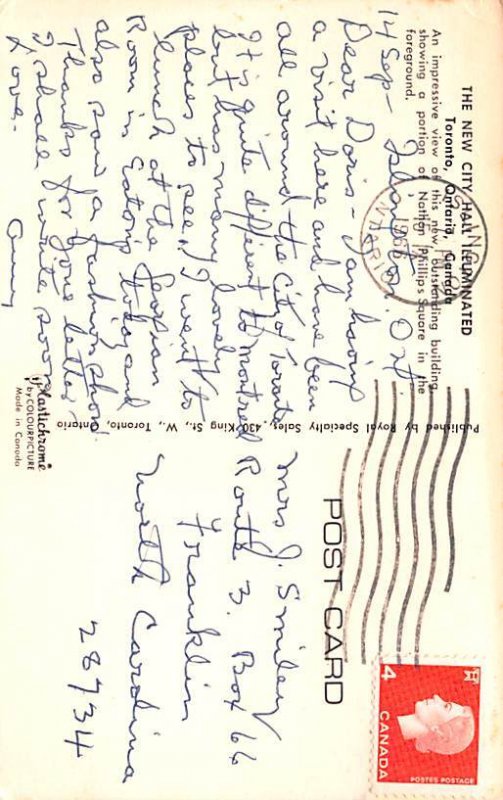 THE NEW CITY HALL ILLUMINATED
Toronto, Ontario, Canada
An impressive view of this new, outstanding building
showing a portion of Nathan Phillips Square in the
foreground.
14 Sep - Islington. Ont.
Dear Doris - I am having
a visit here and have been
all around the City of Toronto
It is quite different to Montreal
but has many lovely
places to see. I went to
lunch at the Georgian
Room in Eatons today and
also saw a fashion show.
Thanks for your letter
I shall write soon
Love -
Amy
Plastichrome
by COLOURPICTURE
Made in Canada
Published by Royal Specialty Sales, 430 King St. W., Toronto, Ontario
POST CARD
Mrs J. Smiley
Route 3. Box 66
Franklin
North Carolina
28734
1966
4
CANADA
POSTES POSTAGE